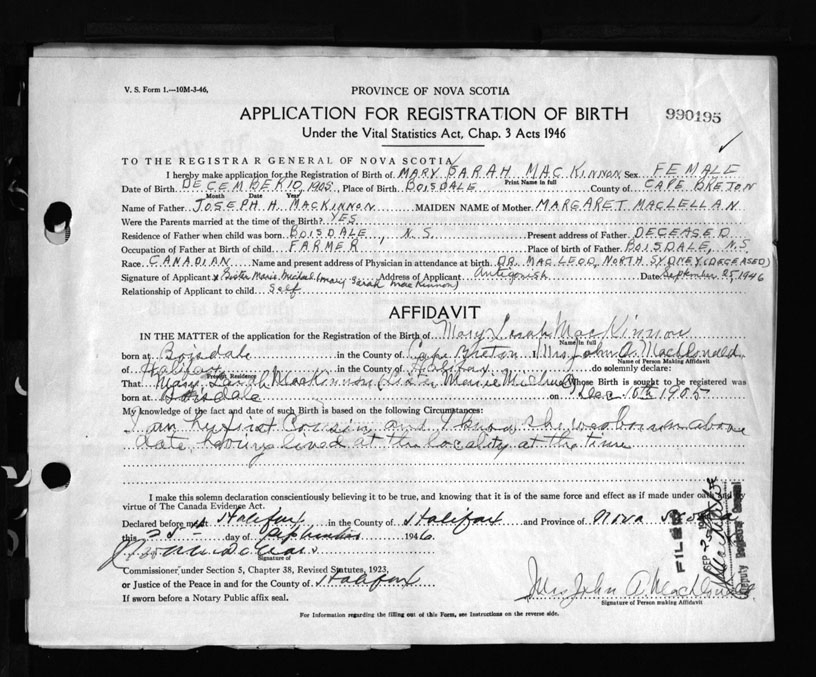 V. S. Form 1.—10M-3-46.
PROVINCE OF NOVA SCOTIA
APPLICATION FOR REGISTRATION OF BIRTH
990195
Under the Vital Statistics Act, Chap. 3 Acts 1946
TO THE REGISTRAR GENERAL OF NOVA SCOTIA
I hereby make application for the Registration of Birth of MARY SARAH MACKINNON Sex FEMALE
Print Name in full
Date of Birth DECEMBER 10, 1905 Place of Birth BOISDALE County of CAPE BRETON
Month Date Year
Name of Father JOSEPH H. MACKINNON MAIDEN NAME of Mother MARGARET MACLELLAN
Were the Parents married at the time of the Birth? YES
Residence of Father when child was born BOISDALE, N.S. Present address of Father DECEASED
Occupation of Father at Birth of child FARMER Place of birth of Father BOISDALE, N.S.
Race CANADIAN Name and present address of Physician in attendance at birth DR. MACLEOD, NORTH SYDNEY (DECEASED)
Signature of Applicant x Sister Marie Michael (Mary Sarah MacKinnon) Address of Applicant Antigonish Date September 25, 1946
Relationship of Applicant to child Self
AFFIDAVIT
IN THE MATTER of the application for the Registration of the Birth of Mary Sarah MacKinnon
Name in full
born at Boisdale in the County of Cape Breton I Mrs. John A. MacDonald
Name of Person Making Affidavit
of Halifax in the County of Halifax do solemnly declare:
Present Residence
That Mary Sarah MacKinnon (Sister Marie Michael) Whose Birth is sought to be registered was
born at Boisdale on Dec 10th 1905
My knowledge of the fact and date of such Birth is based on the following Circumstances:
I am her first Cousin and I know she was born on above
date, having lived at the locality at the time
I make this solemn declaration conscientiously believing it to be true, and knowing that it is of the same force and effect as if made under oath and by
virtue of The Canada Evidence Act.
Declared before me at Halifax in the County of Halifax and Province of Nova Scotia
this 25 day of September 1946
Signature of
Commissioner under Section 5, Chapter 38, Revised Statutes, 1923,
or Justice of the Peace in and for the County of Halifax
If sworn before a Notary Public affix seal.
Mrs John A. MacDonald
Signature of Person making Affidavit
FILED
SEP 25
Deputy Registrar General
For Information regarding the filling out of this Form, see Instructions on the reverse side.